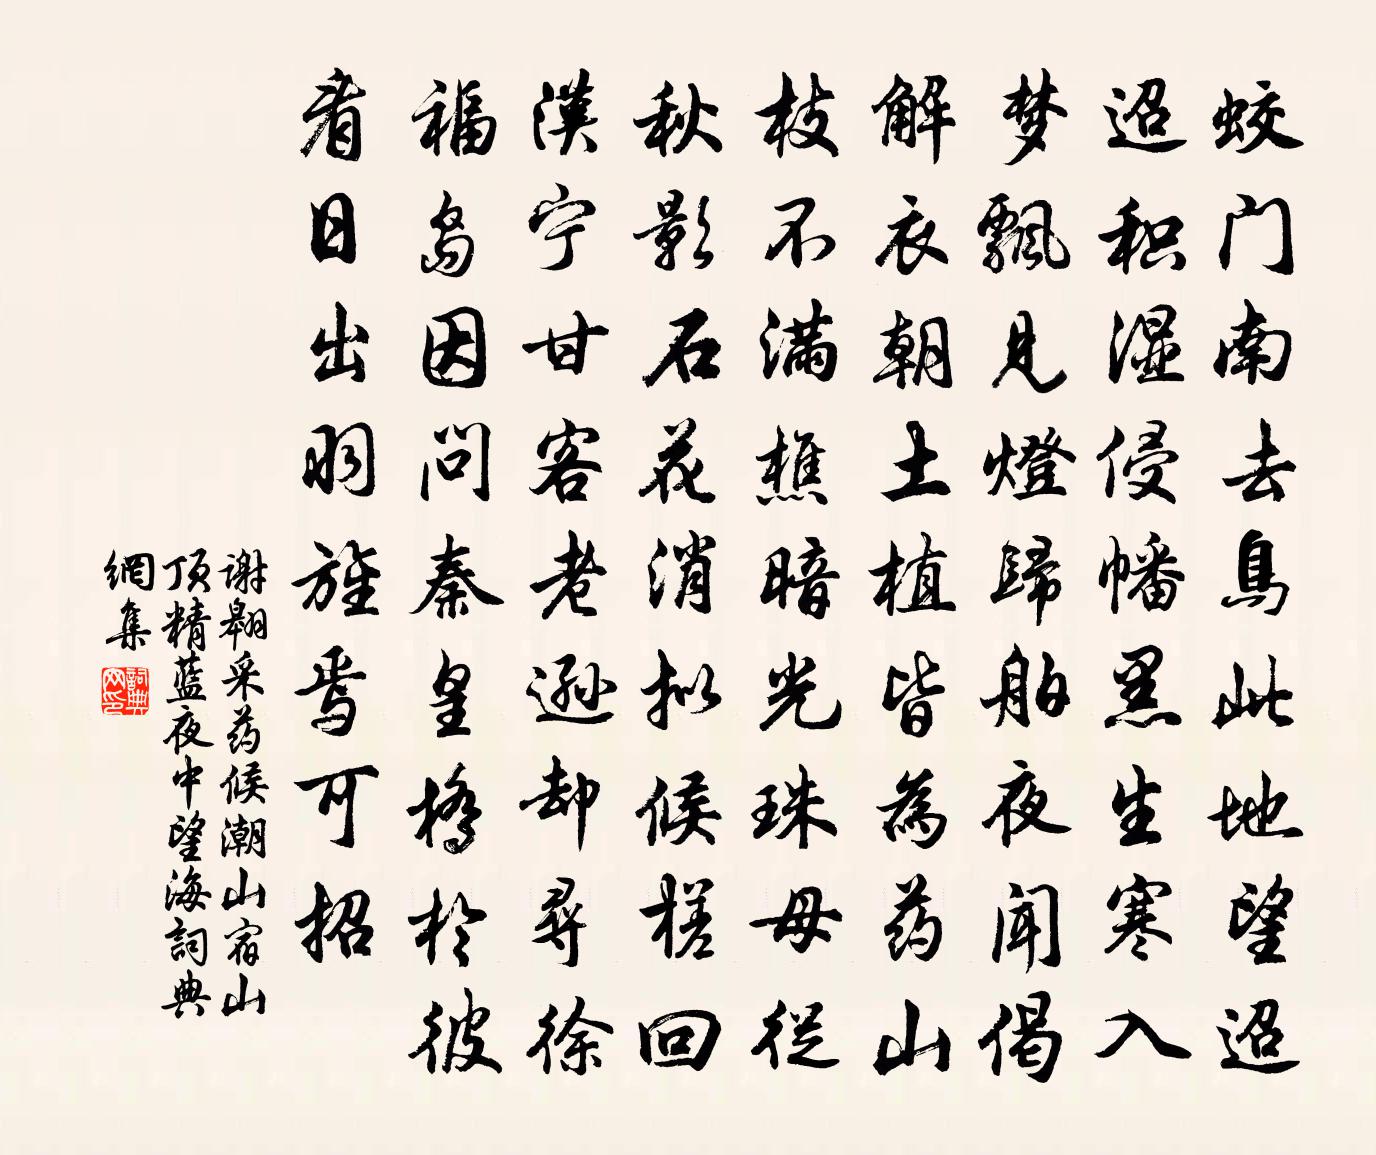 蛟门南去鳥此地望迢
迢积湿侵幡黑生寒入
梦飘見燈歸舶夜闻偈
解衣朝土植皆為药山
枝不满樵暗光珠母從
秋影石花消拟候槎回
漢宁甘客老遜却尋徐
福島因問秦皇橋於彼
看日出羽旌焉可招
谢翱采药候潮山宿山
顶精蓝夜中望海詞典
網集
詞典网印